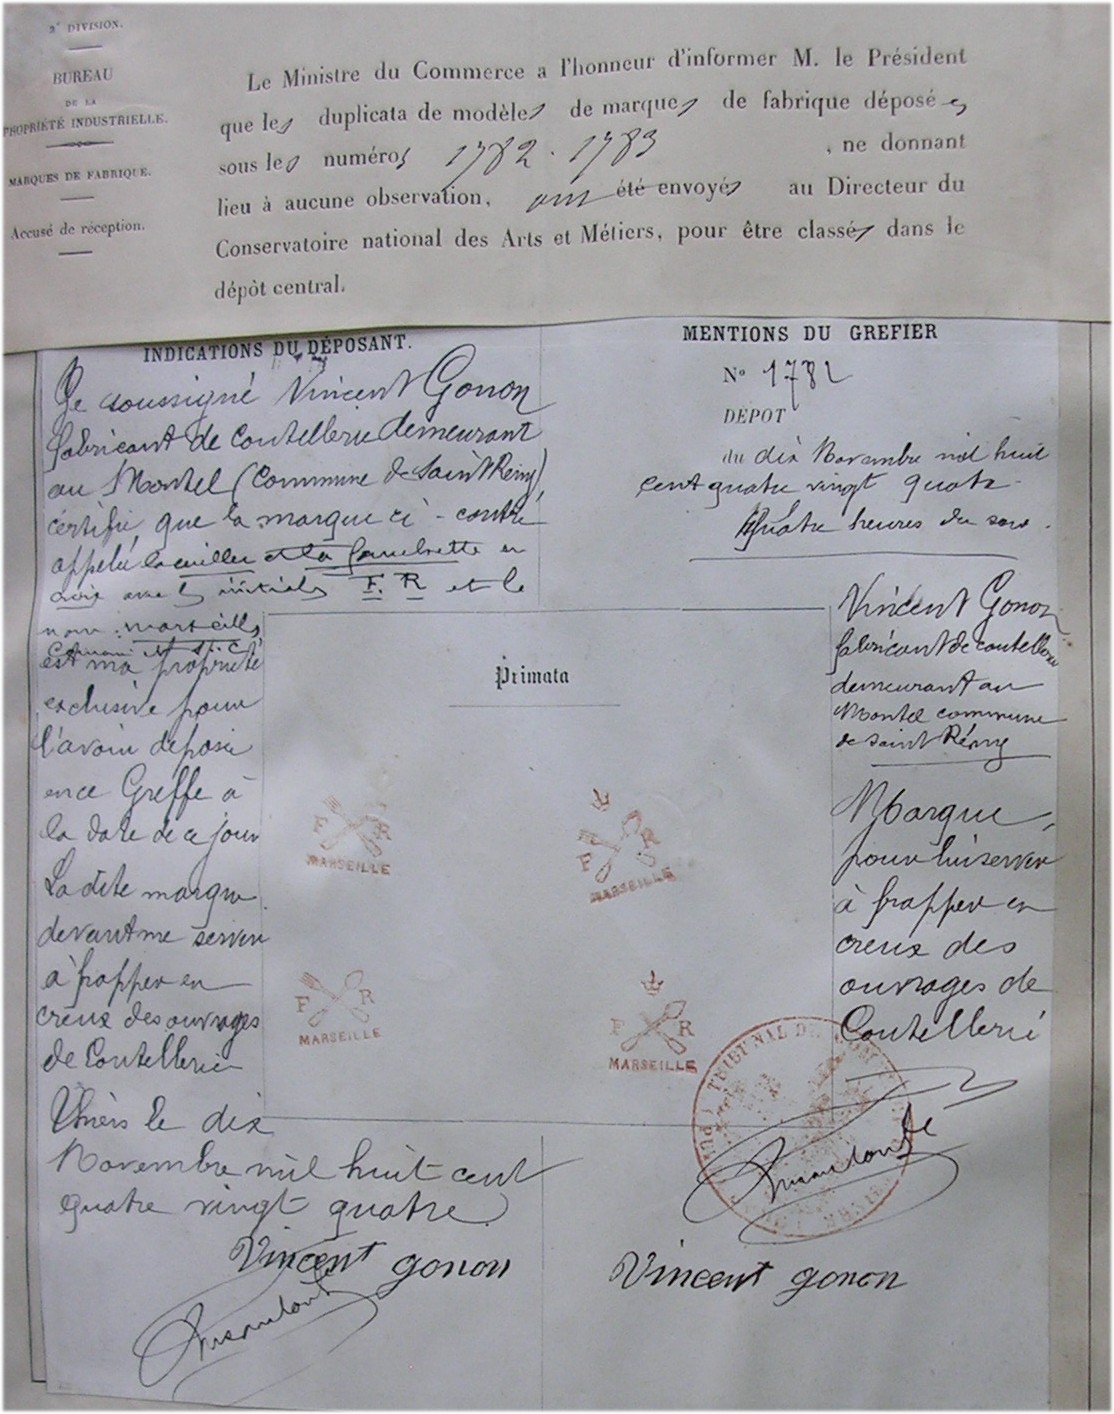 2e DIVISION.
BUREAU
DE LA
PROPRIÉTÉ INDUSTRIELLE.
MARQUES DE FABRIQUE.
Accusé de réception.
Le Ministre du Commerce a l'honneur d'informer M. le Président
que les duplicata de modèles de marques de fabrique déposés
sous les numéros 1782 . 1783 , ne donnant
lieu à aucune observation, ont été envoyés au Directeur du
Conservatoire national des Arts et Métiers, pour être classés dans le
dépôt central.
INDICATIONS DU DÉPOSANT.
Je soussigné Vincent Gonon
fabricant de Coutellerie demeurant
au Montel (Commune de Saint Rémy)
certifie, que la marque ci-contre
appelée la cuiller et la fourchette en
croix avec les initiales F. R et le
nom : marseille,
est ma propriété
exclusive pour
l'avoir déposée
en ce Greffe à
la date de ce jour
La dite marque
devant me servir
à frapper en
creux des ouvrages
de Coutellerie
Thiers le dix
Novembre mil huit cent
quatre vingt quatre
Vincent gonon
MENTIONS DU GREFIER
No 1782
DÉPOT
du dix Novembre mil huit
cent quatre vingt quatre
Quatre heures du soir.
Vincent Gonon
fabricant de coutellerie
demeurant au
Montel commune
de Saint Rémy
Marque,
pour lui servir
à frapper en
creux des
ouvrages de
Coutellerie
Vincent gonon
Primata
F R
MARSEILLE
F R
MARSEILLE
F R
MARSEILLE
F R
MARSEILLE
TRIBUNAL DE COMM